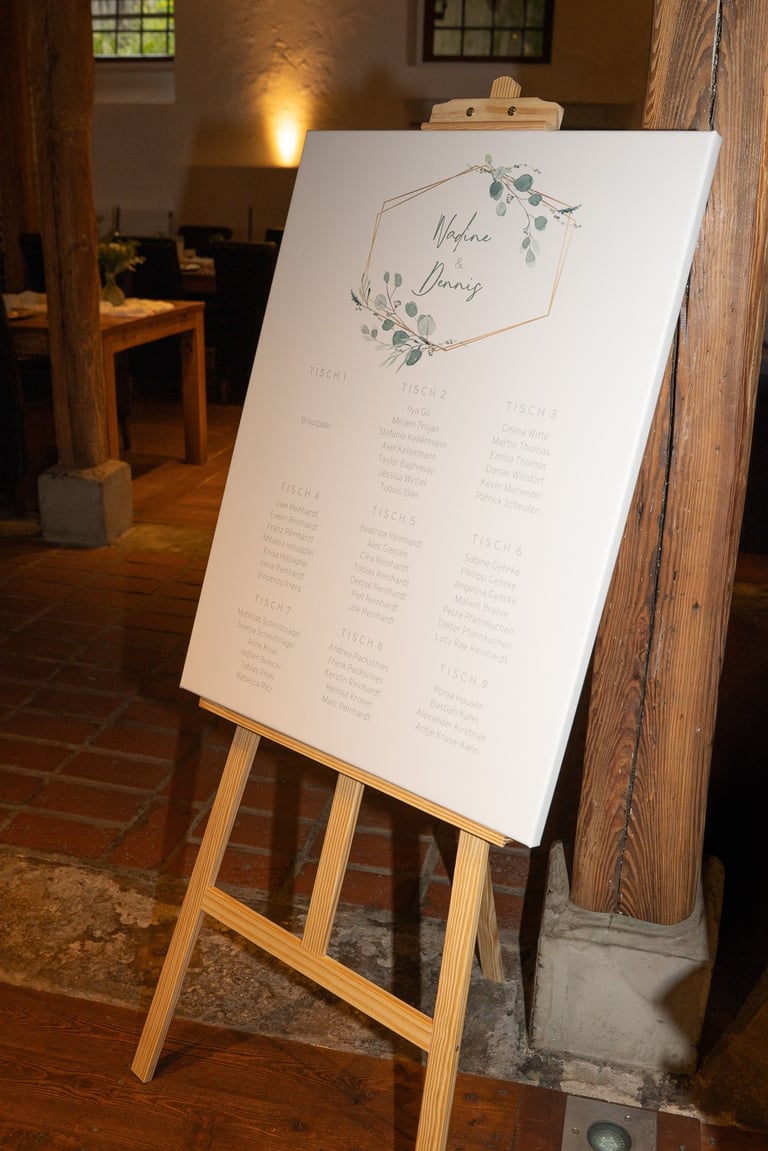 Nadine
&
Dennis
TISCH 1
Brautpaar
TISCH 2
Ilya Gil
Miriam Trojan
Stefanie Kellermann
Axel Kellermann
Taylor Baphimay
Jessica Winter
Tobias
TISCH 3
Celina Witte
Martin Thomas
Emilia Thomas
Danae Wilsdorf
Kevin Marwedel
Patrick Scheufen
TISCH 4
Uwe Reinhardt
Evelin Reinhardt
Franz Reinhardt
Mihaela Holzapfel
Enisa Holzapfel
Irene Reinhardt
Vincenzo
TISCH 5
Beatrice Reinhardt
Alec Gansen
Clea Reinhardt
Tobias Reinhardt
Denise Reinhardt
Piet Reinhardt
Joe Reinhardt
TISCH 6
Sabine Gehrke
Philipp Gehrke
Angelina Gehrke
Malwin Brahm
Petra Pfannkuchen
Dieter Pfannkuchen
Lucy Rae Reinhardt
TISCH 7
Matthias Schmittnägel
Svenja Schmittnägel
Anne Kniel
Jochen Bielecki
Tobias
Rebecca Pitz
TISCH 8
Andrea Packschies
Frank Packschies
Kerstin Reinhardt
Helmut Kroner
Marc Reinhardt
TISCH 9
Ronja Hauser
Bastian Kahn
Alexander Kirchner
Antje Kruse-Kahn